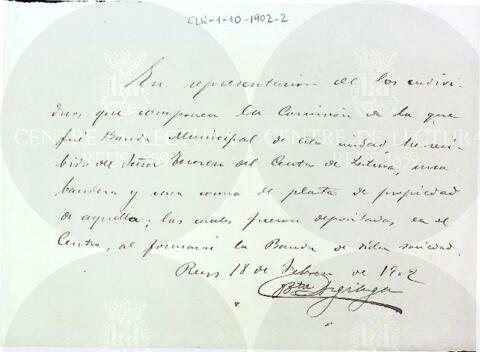 CLR-1-10-1902-2
En representación de los individ
duos que componen la Comisión de la que
fué Banda Municipal de esta ciudad he reci-
bido del Señor Tesorero del Centro de Lectura, una
bandera y una corona de plata de propiedad
de aquella; las cuales fueron depositadas en el
Centro, al formarse la Banda de dicha sociedad.
Reus 18 de Febrero de 1902
CENTRE DE LECTURA
REUS 1859
CENTRE DE LECTURA
REUS 1859